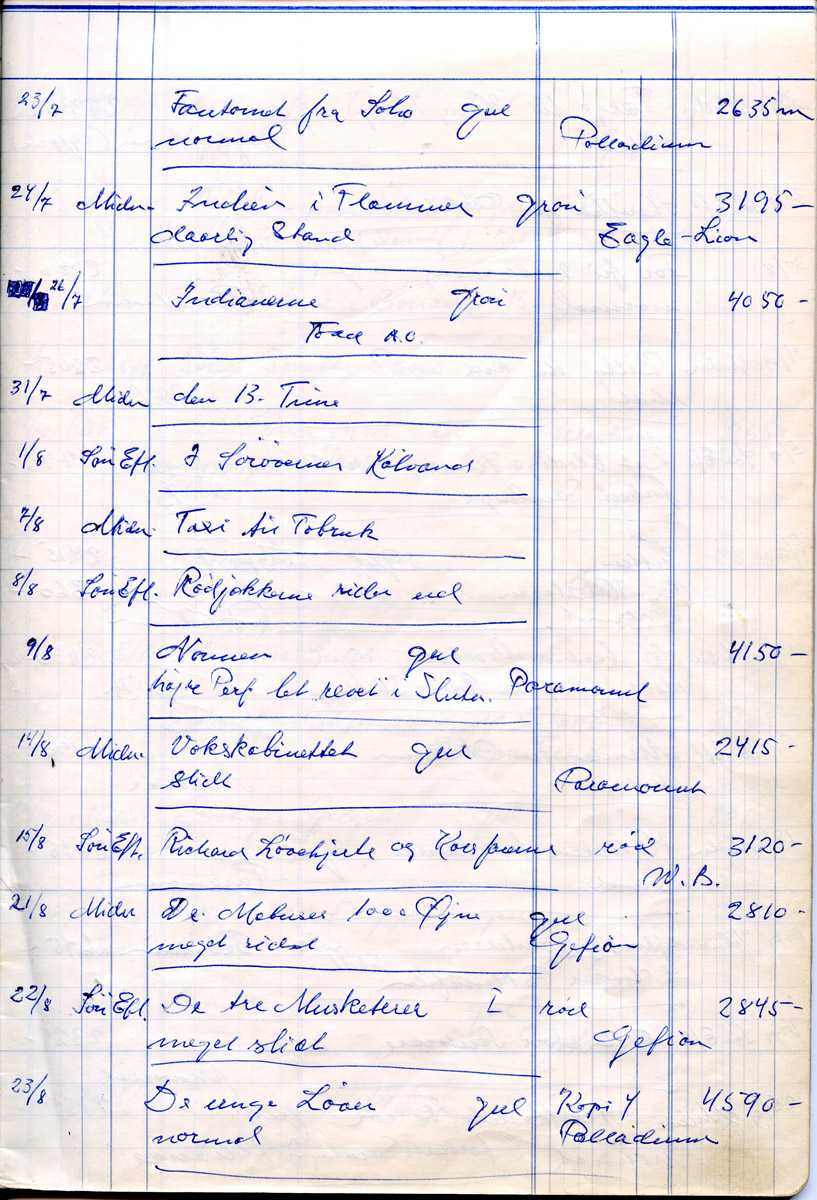 23/7 Fantomet fra Soho gul 2635 m
normal Palladium
24/7 Midn. Indien i Flammer grøn 3195 -
daarlig Stand Eagle-Lion
26/7 Indianerne grøn 4050 -
Todd A.O.
31/7 Midn den 13. Time
1/8 Søn Eft. I Sørøvernes Kølvand
7/8 Midn. Taxi til Tobruk
8/8 Søn Eft. Rødjakkerne rider ud
9/8 Nonnen gul 4150 -
højre Perf let revet i Slutn. Paramount
14/8 Midn. Vokskabinettet gul 2415 -
slidt Paramount
15/8 Søn Eft. Richard Løvehjerte og Korsfarerne rød 3120 -
W. B.
21/8 Midn Dr. Mabuses 1000 Øjne gul 2810 -
meget ridset Gefion
22/8 Søn Eft. De tre Musketerer I rød 2845 -
meget slidt Gefion
23/8 De unge Løver gul Kopi 4 4590 -
normal Palladium